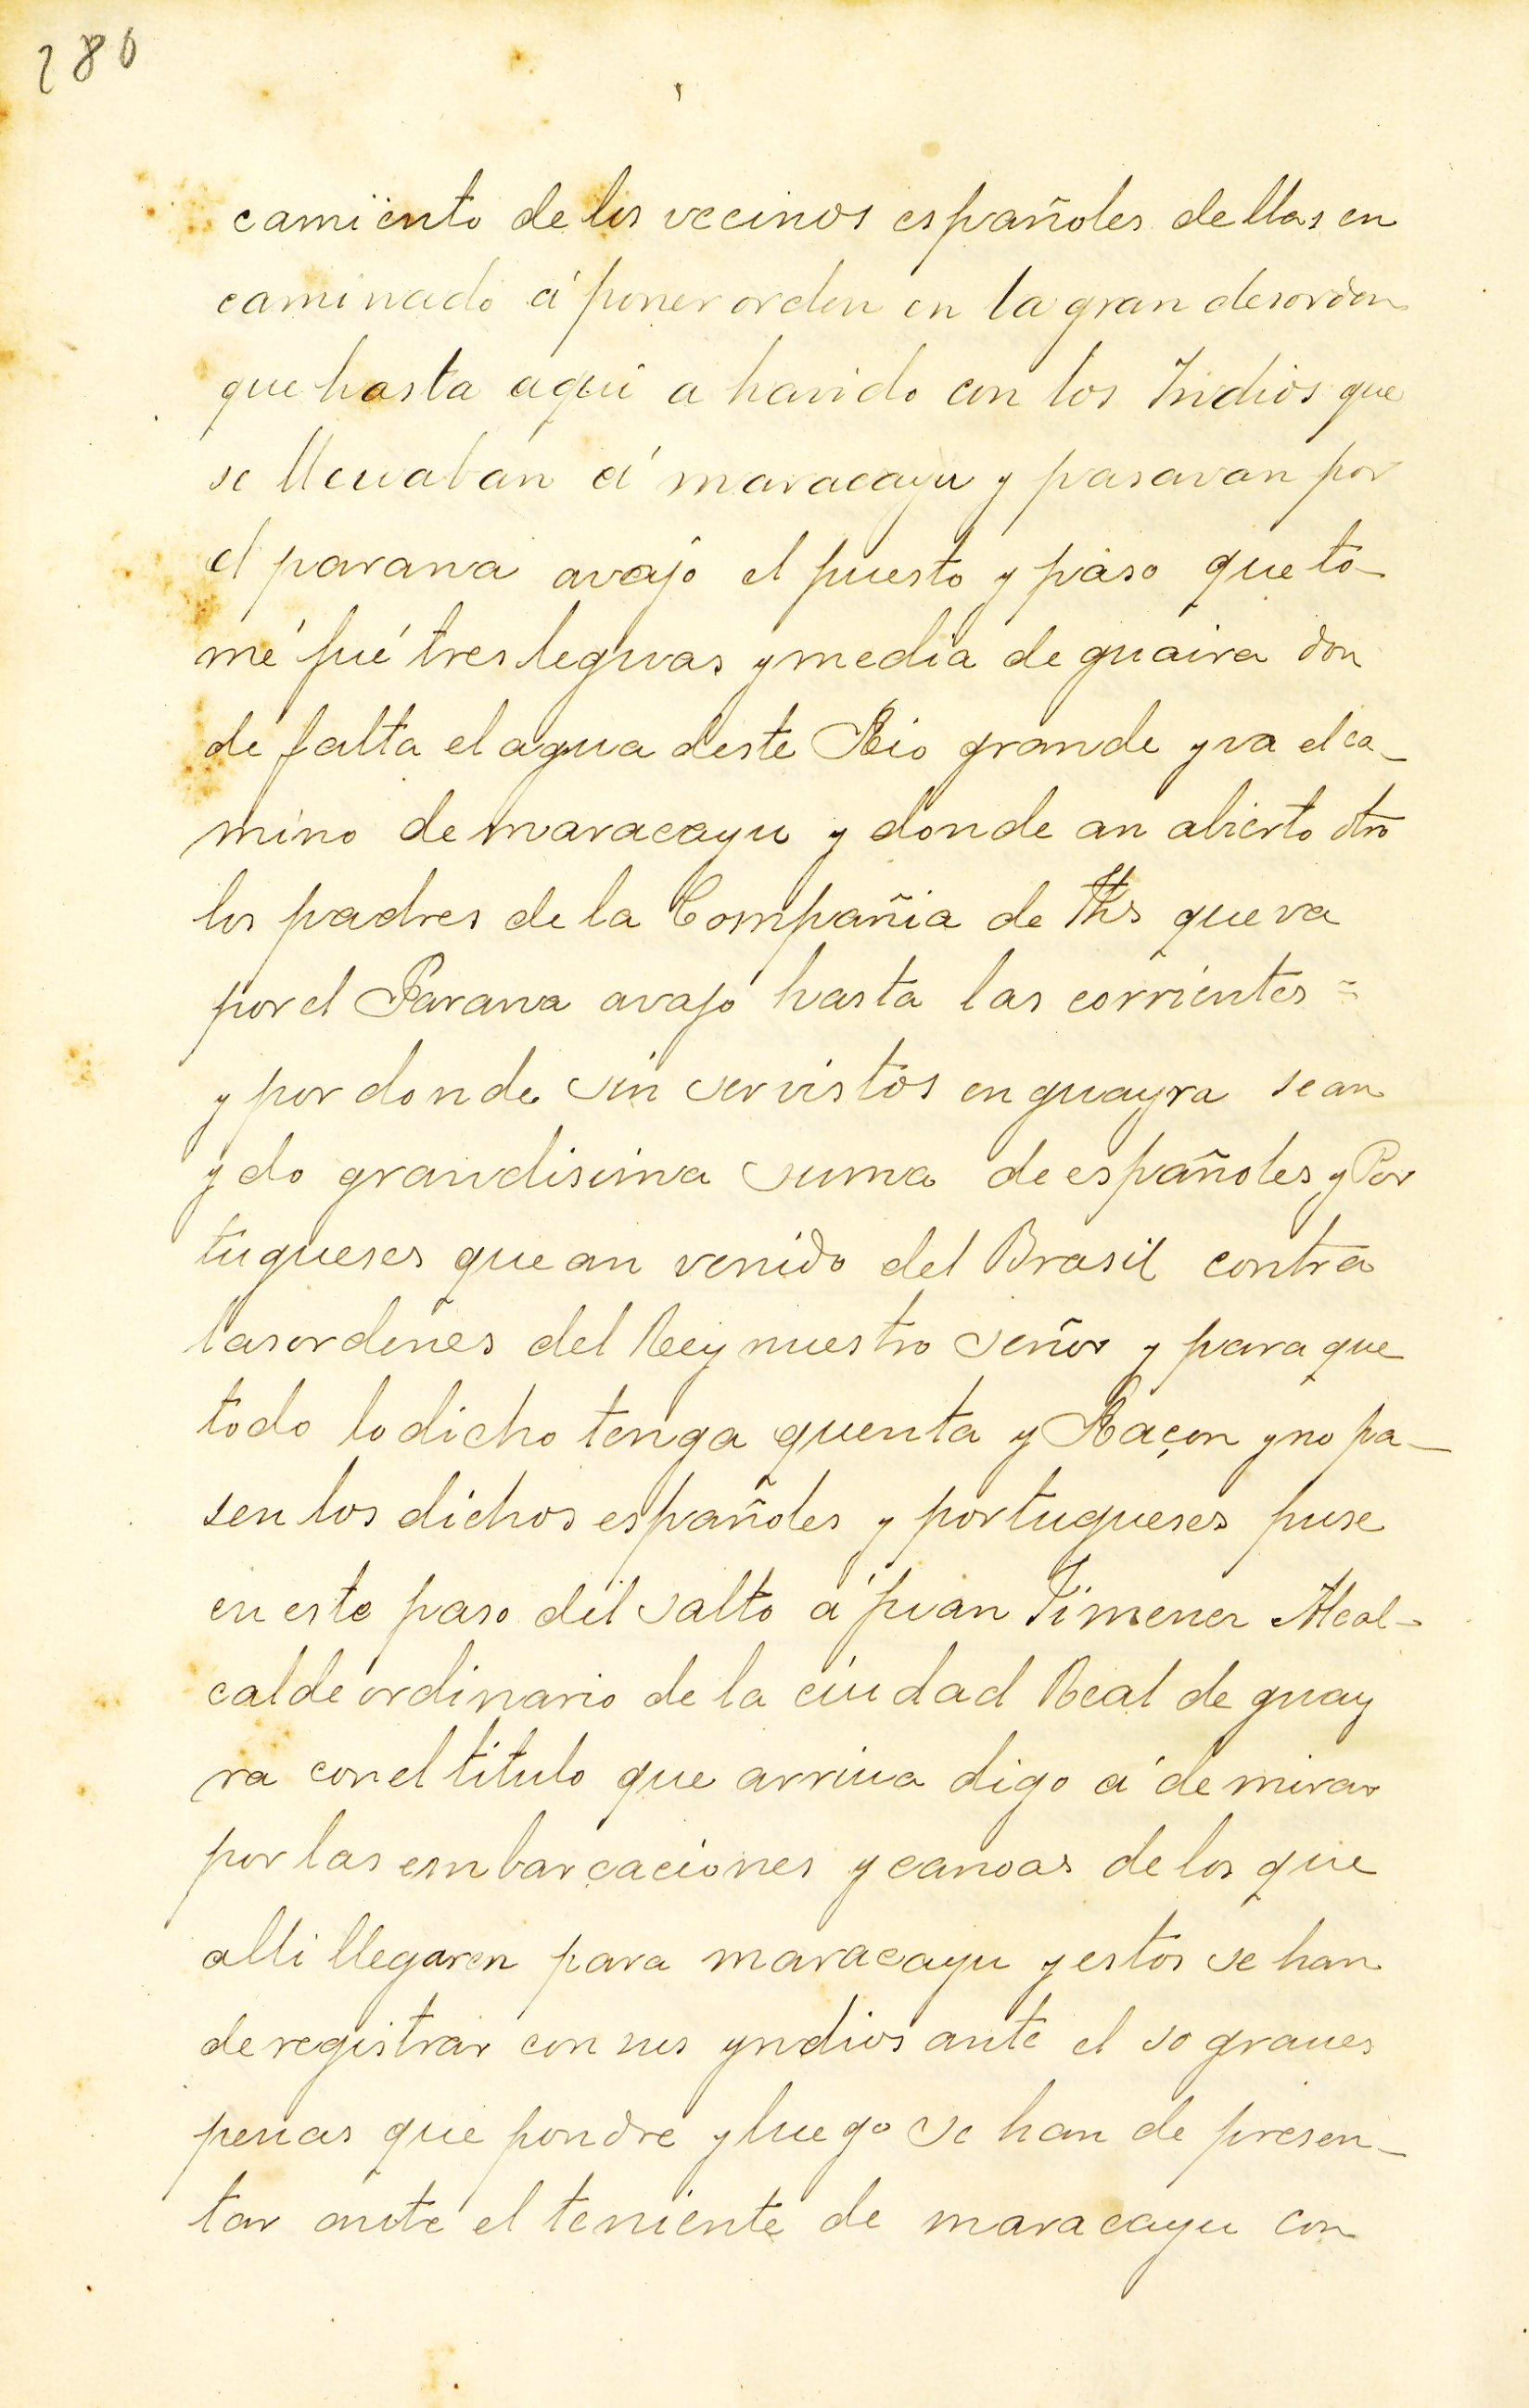 280
camiento de los vecinos españoles dellas en
caminado á poner orden en la gran desorden
que hasta aqui a havido con los Indios que
se lleuaban á maracayu y pasavan por
el parana avajo el puesto y paso que to-
mé fué tres leguas y media de guaira don
de falta el agua deste Rio grande y va el ca-
mino de maracayu y donde an abierto otro
los padres de la Compañia de Ths que va
por el Parana avajo hasta las corrientes =
y por donde sin ser vistos en guayra se an
ydo grandisima suma de españoles y Por
tugueses que an venido del Brasil contra
las ordenes del Rey nuestro señor y para que
todo lo dicho tenga quenta y Raçon y no pa-
sen los dichos españoles y portugueses puse
en este paso del salto á juan Jimenez Alcal-
calde ordinario de la ciudad Real de guay
ra con el titulo que arriua digo á de mirar
por las embarcaciones y canoas de los que
alli llegaren para maracayu y estos se han
de registrar con sus yndios ante el so graues
penas que pondre y luego se han de presen-
tar ante el teniente de maracayu con